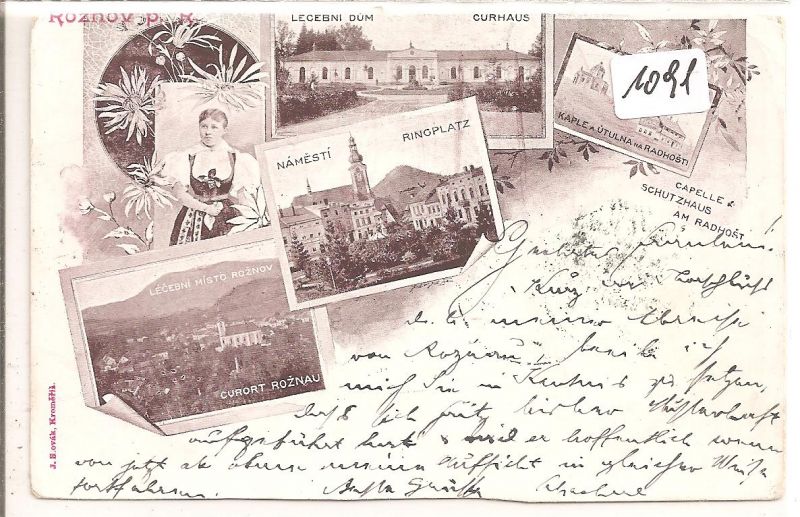 Rožnov p. R.
LÉČEBNÍ DŮM CURHAUS
1091
KAPLE A ÚTULNA NA RADHOŠTI
CAPELLE &
SCHUTZHAUS
AM RADHOŠT
NÁMĚSTÍ RINGPLATZ
LÉČEBNÍ MÍSTO ROŽNOV
CURORT ROŽNAU
J. Slovák, Kroměříž.
Kurz vor
d. i. meiner Abreise
von Rožnau, ich
mich Sie in Kenntnis zu setzen,
daß sich gut bisher musterhaft
aufgeführt hat & wird er hoffentlich wenn
von jetzt ab ohne meine Aufsicht in gleicher Weise
fortfahren. Beste Grüße